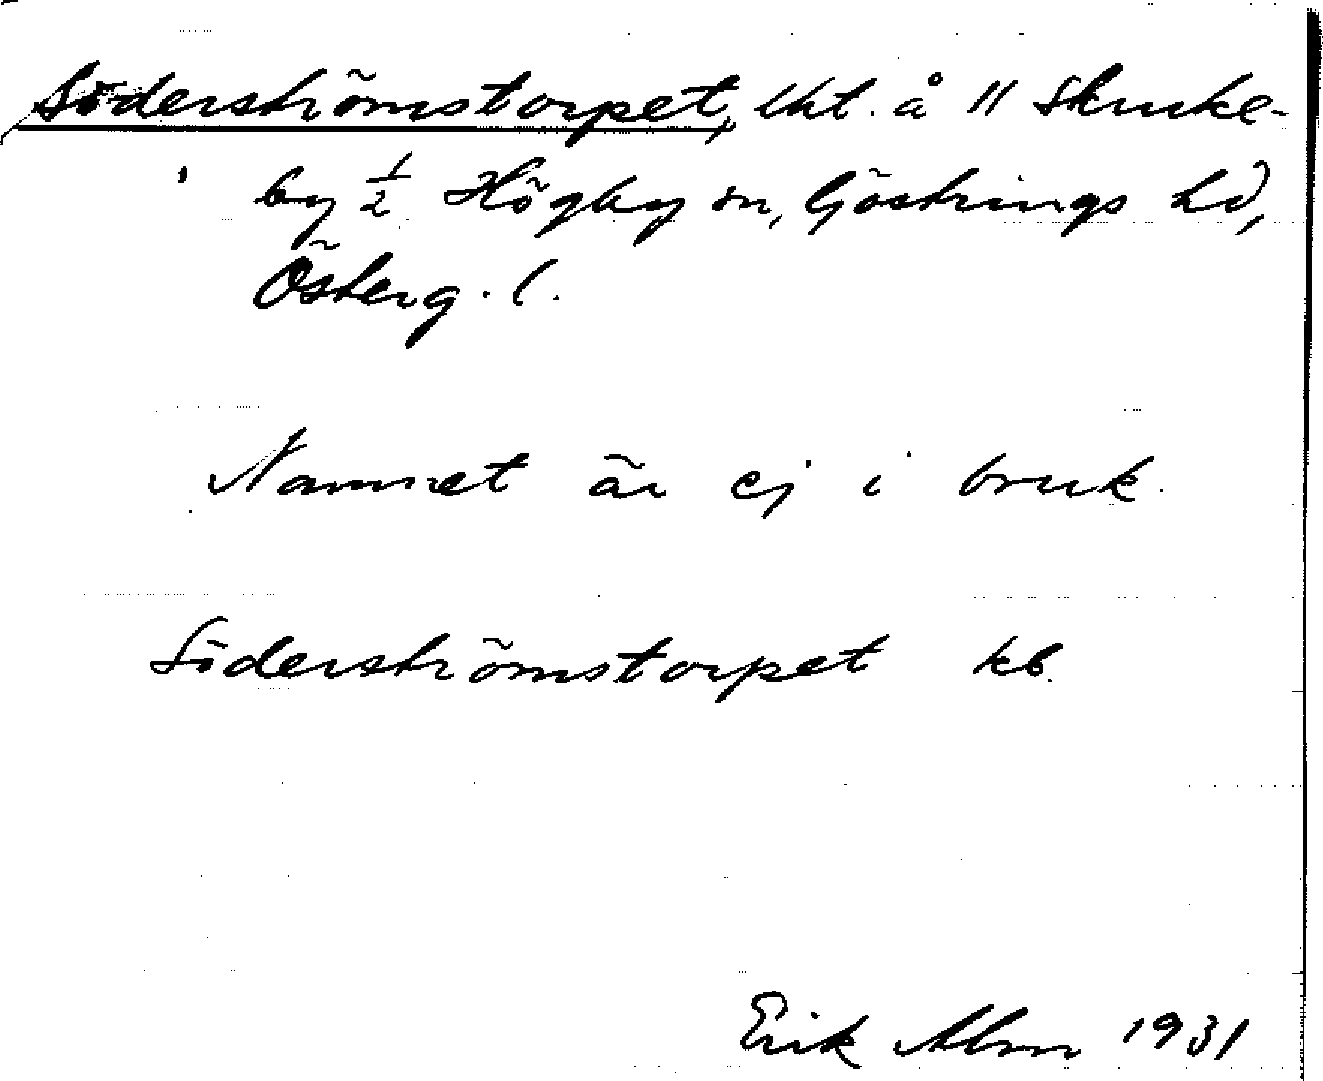 Söderströmstorpet, lht. å 11 Skruke-
by ½ Högby sn, Göstrings hd,
Österg. l.
Namnet är ej i bruk.
Söderströmstorpet kb.
Erik Alm 1931